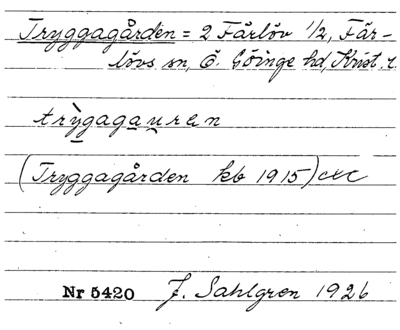 Tryggagården = 2 Färlöv 1/2, Fär-
lövs sn, Ö. Göinge hd, Krist. l.
trỳgagau̯ran
(Tryggagården kb 1915)
Nr 5420 J. Sahlgren 1926